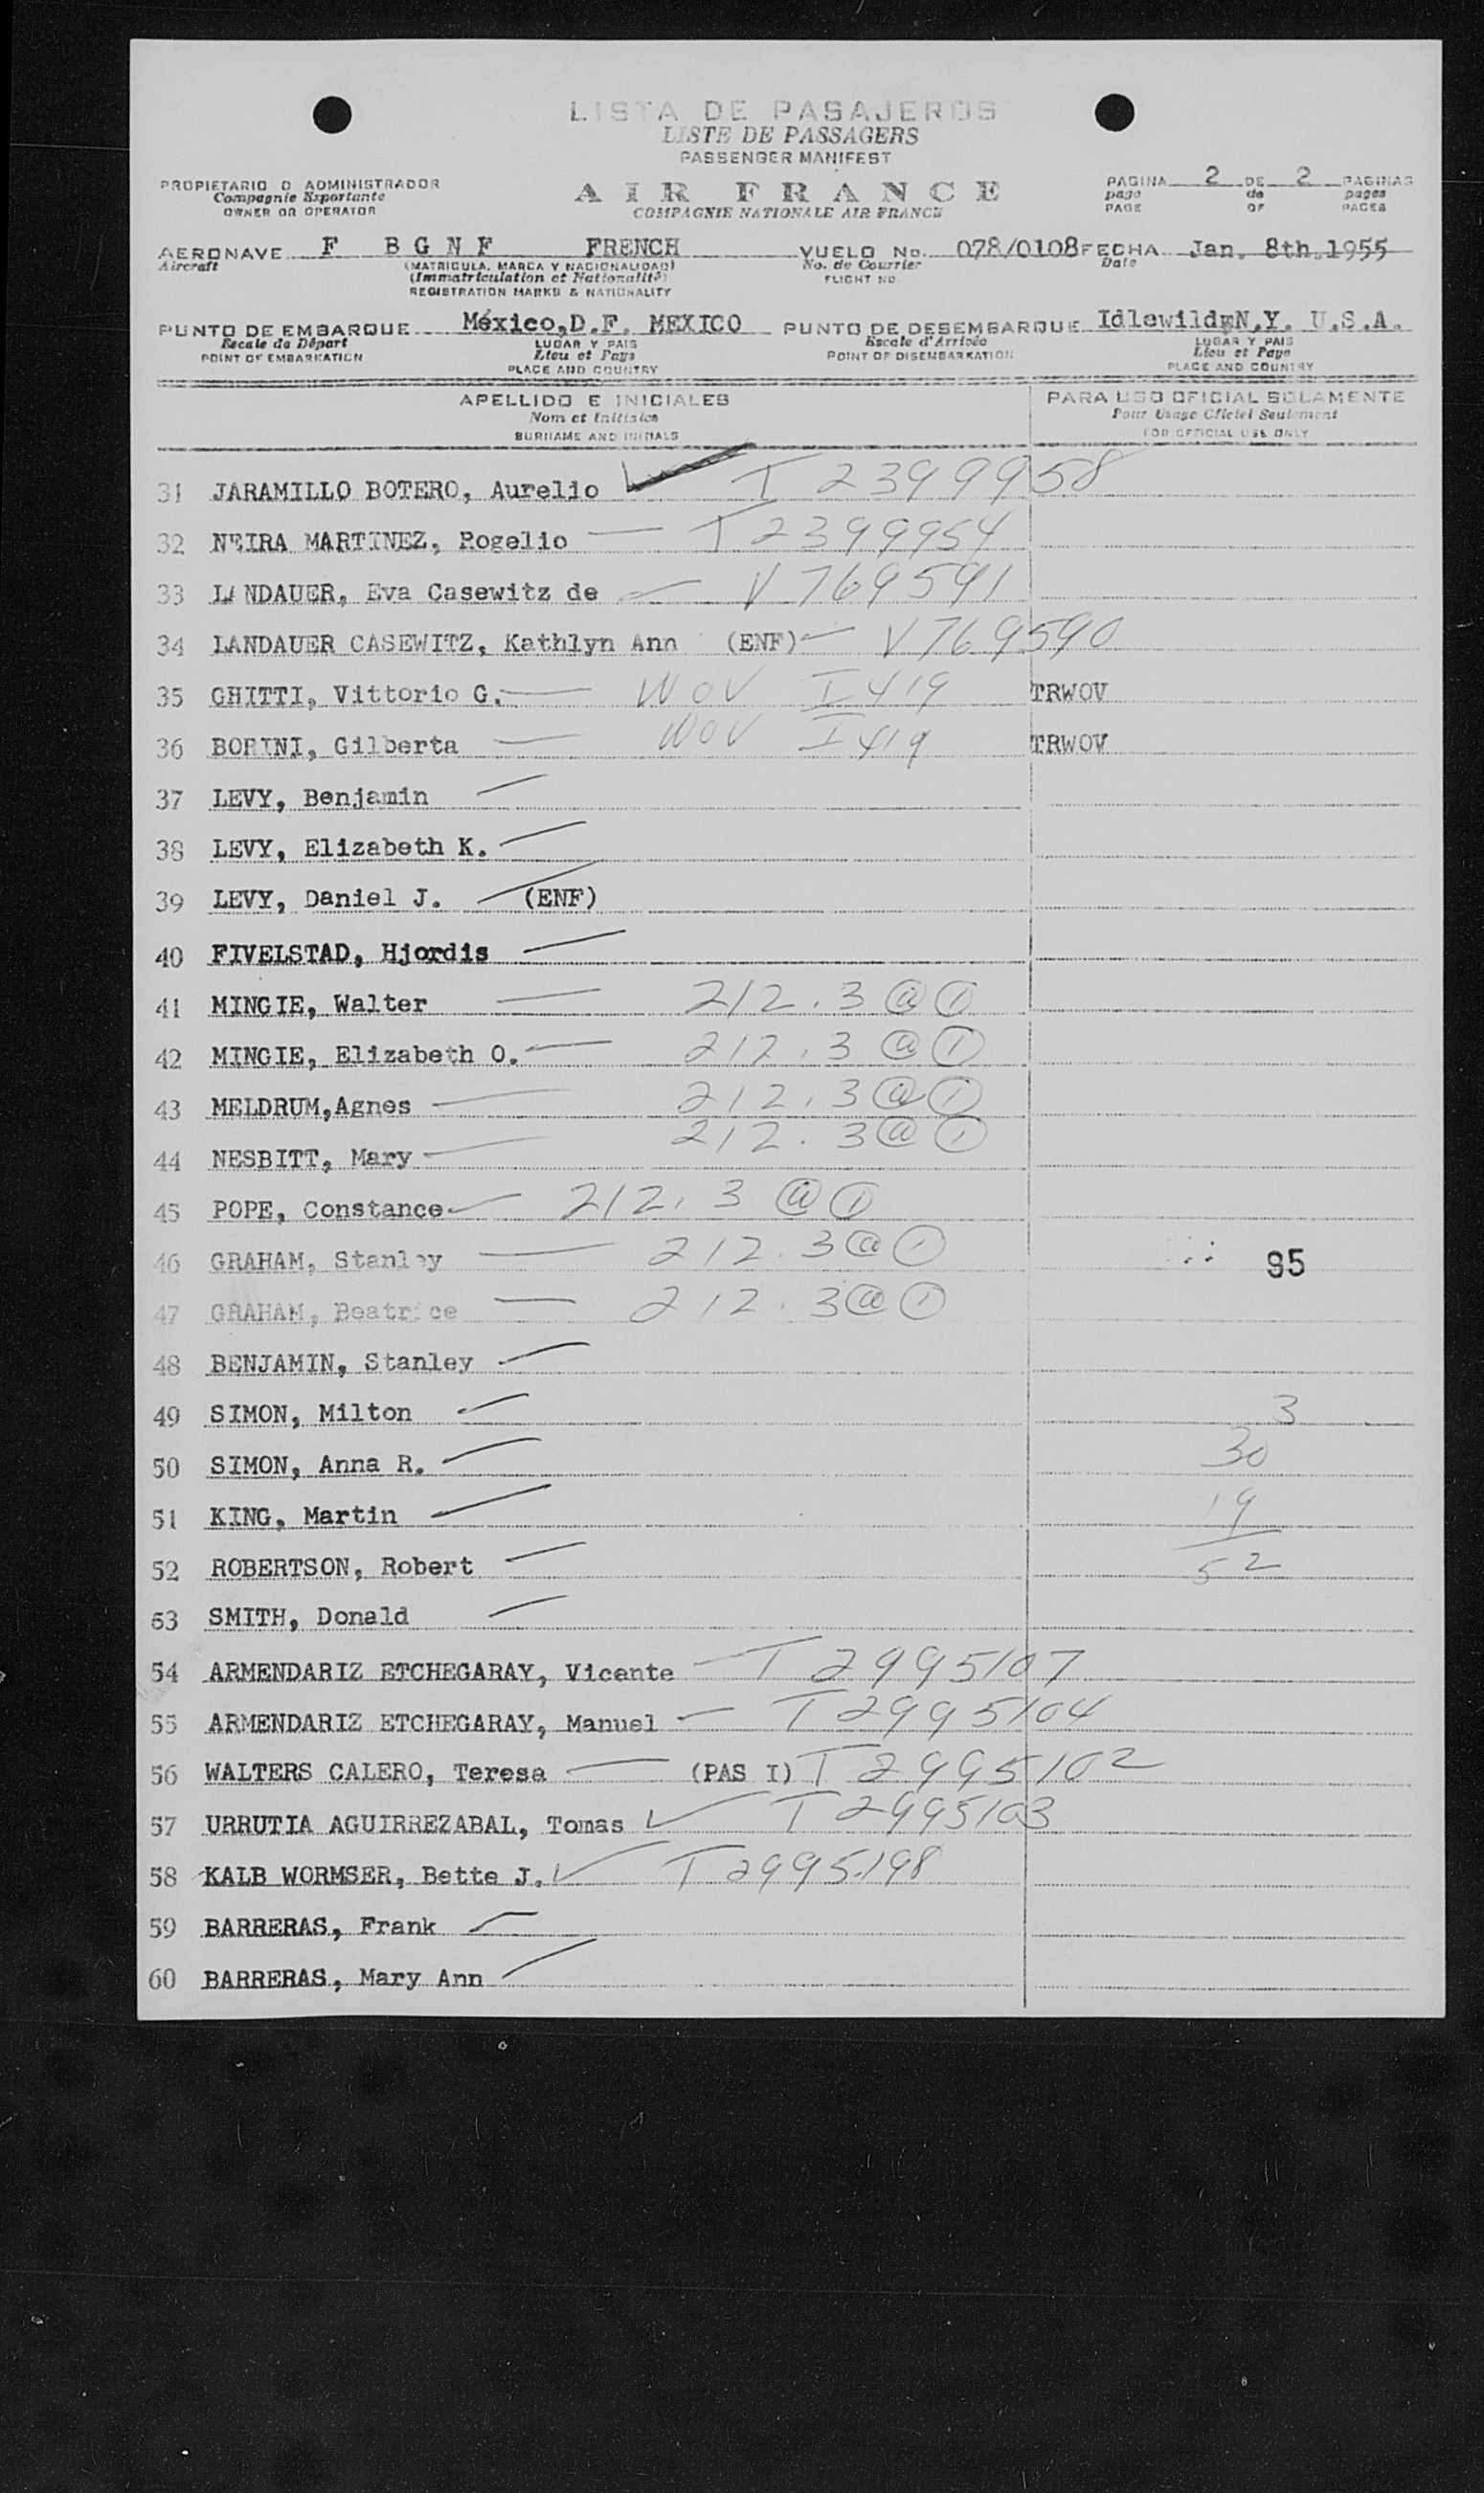 LISTA DE PASAJEROS
LISTE DE PASSAGERS
PASSENGER MANIFEST
PROPIETARIO O ADMINISTRADOR
Compagnie Exportante
OWNER OR OPERATOR
AIR FRANCE
COMPAGNIE NATIONALE AIR FRANCE
PAGINA 2 DE 2 PAGINAS
page de pages
PAGE OF PAGES
AERONAVE F BGNF FRENCH VUELO No. 078/0108 FECHA Jan. 8th.1955
Aircraft (MATRICULA, MARCA Y NACIONALIDAD) No. de Courrier Date
(Immatriculation et Nationalité) FLIGHT NO.
REGISTRATION MARKS & NATIONALITY
PUNTO DE EMBARQUE México,D.F. MEXICO PUNTO DE DESEMBARQUE Idlewild,N.Y. U.S.A.
Escale de Départ LUGAR Y PAIS Escale d'Arrivée LUGAR Y PAIS
POINT OF EMBARKATION Lieu et Pays POINT OF DISEMBARKATION Lieu et Pays
PLACE AND COUNTRY PLACE AND COUNTRY
APELLIDO E INICIALES PARA USO OFICIAL SOLAMENTE
Nom et Initiales Pour Usage Officiel Seulement
SURNAME AND INITIALS FOR OFFICIAL USE ONLY
31 JARAMILLO BOTERO, Aurelio I 2399958
32 NEIRA MARTINEZ, Rogelio I 2399954
33 LANDAUER, Eva Casewitz de V 769591
34 LANDAUER CASEWITZ, Kathlyn Ann (ENF) V 769590
35 GHITTI, Vittorio G. WOV I 419 TRWOV
36 BORINI, Gilberta WOV I 419 TRWOV
37 LEVY, Benjamin
38 LEVY, Elizabeth K.
39 LEVY, Daniel J. (ENF)
40 FIVELSTAD, Hjordis
41 MINGIE, Walter 212.3 @ 1
42 MINGIE, Elizabeth O. 212.3 @ 1
43 MELDRUM,Agnes 212.3 @ 1
44 NESBITT, Mary 212.3 @ 1
45 POPE, Constance 212.3 @ 1
46 GRAHAM, Stanley 212.3 @ 1 95
47 GRAHAM, Beatrice 212.3 @ 1
48 BENJAMIN, Stanley
49 SIMON, Milton 3
50 SIMON, Anna R. 30
51 KING, Martin 19
52 ROBERTSON, Robert 52
53 SMITH, Donald
54 ARMENDARIZ ETCHEGARAY, Vicente T 2995107
55 ARMENDARIZ ETCHEGARAY, Manuel T 2995104
56 WALTERS CALERO, Teresa (PAS I) T 2995102
57 URRUTIA AGUIRREZABAL, Tomas T 2995103
58 KALB WORMSER, Bette J. T 2995198
59 BARRERAS, Frank
60 BARRERAS, Mary Ann